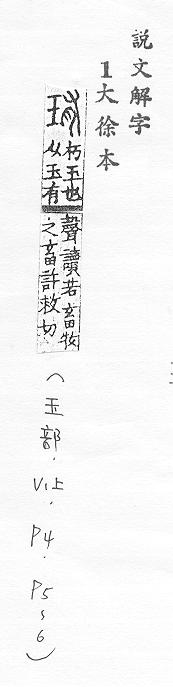 説文解字
1大徐本
珛 朽玉也
从玉有
聲讀若畜牧
之畜許救切
（玉部．V1上．P4．P5~6）